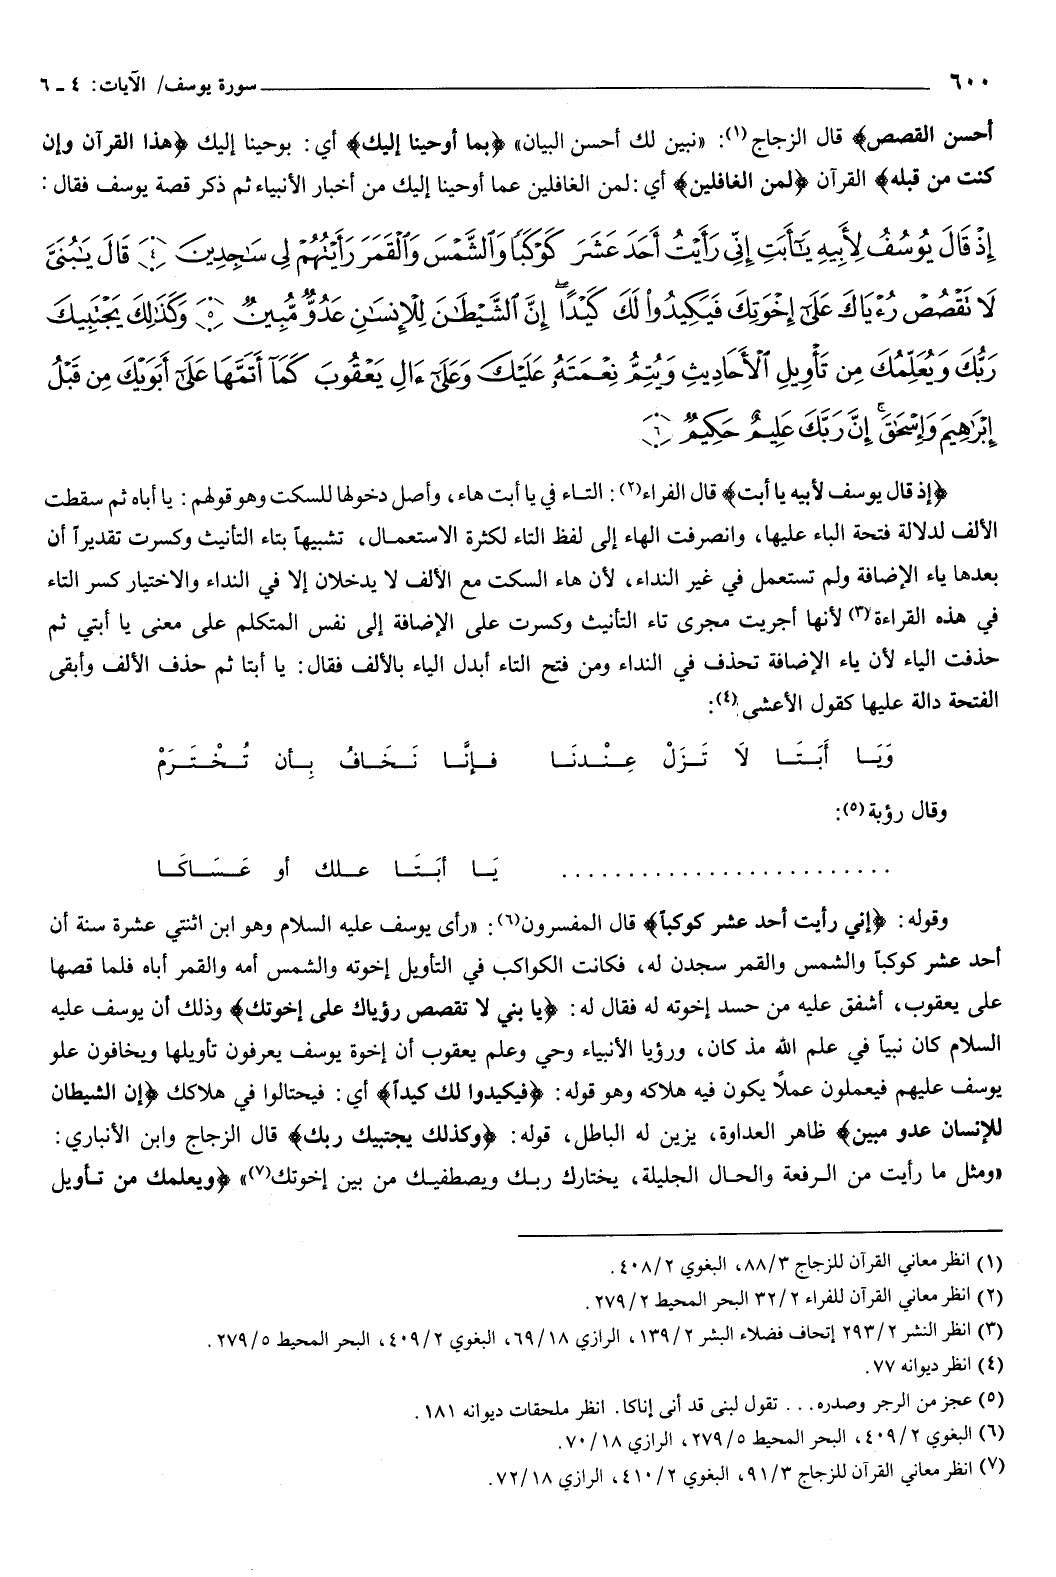 ٦٠٠ سورة يوسف/ الآيات: ٤ ـ ٦
أحسن القصص﴾ قال الزجاج(١): «نبين لك أحسن البيان» ﴿بما أوحينا إليك﴾ أي: بوحينا إليك ﴿هذا القرآن وإن
كنت من قبله﴾ القرآن ﴿لمن الغافلين﴾ أي: لمن الغافلين عما أوحينا إليك من أخبار الأنبياء ثم ذكر قصة يوسف فقال:
إِذْ قَالَ يُوسُفُ لِأَبِيهِ يَٰٓأَبَتِ إِنِّي رَأَيْتُ أَحَدَ عَشَرَ كَوْكَبًا وَٱلشَّمْسَ وَٱلْقَمَرَ رَأَيْتُهُمْ لِي سَٰجِدِينَ ﴿٤﴾ قَالَ يَٰبُنَيَّ
لَا تَقْصُصْ رُءْيَاكَ عَلَىٰٓ إِخْوَتِكَ فَيَكِيدُوا۟ لَكَ كَيْدًا ۖ إِنَّ ٱلشَّيْطَٰنَ لِلْإِنسَٰنِ عَدُوٌّ مُّبِينٌ ﴿٥﴾ وَكَذَٰلِكَ يَجْتَبِيكَ
رَبُّكَ وَيُعَلِّمُكَ مِن تَأْوِيلِ ٱلْأَحَادِيثِ وَيُتِمُّ نِعْمَتَهُۥ عَلَيْكَ وَعَلَىٰٓ ءَالِ يَعْقُوبَ كَمَآ أَتَمَّهَا عَلَىٰٓ أَبَوَيْكَ مِن قَبْلُ
إِبْرَٰهِيمَ وَإِسْحَٰقَ ۚ إِنَّ رَبَّكَ عَلِيمٌ حَكِيمٌ ﴿٦﴾
﴿إذ قال يوسف لأبيه يا أبت﴾ قال الفراء(٢): التاء في يا أبت هاء، وأصل دخولها للسكت وهو قولهم: يا أباه ثم سقطت
الألف لدلالة فتحة الباء عليها، وانصرفت الهاء إلى لفظ التاء لكثرة الاستعمال، تشبيهاً بتاء التأنيث وكسرت تقديراً أن
بعدها ياء الإضافة ولم تستعمل في غير النداء، لأن هاء السكت مع الألف لا يدخلان إلا في النداء والاختيار كسر التاء
في هذه القراءة(٣) لأنها أجريت مجرى تاء التأنيث وكسرت على الإضافة إلى نفس المتكلم على معنى يا أبتي ثم
حذفت الياء لأن ياء الإضافة تحذف في النداء ومن فتح التاء أبدل الياء بالألف فقال: يا أبتا ثم حذف الألف وأبقى
الفتحة دالة عليها كقول الأعشى(٤):
وَيَا أَبَتَا لَا تَزَلْ عِنْدَنَا فإِنَّا نَخَافُ بِأن تُخْتَرَمْ
وقال رؤبة(٥):
......................... يَا أبَتَا علك أو عَسَاكَا
وقوله: ﴿إني رأيت أحد عشر كوكباً﴾ قال المفسرون(٦): «رأى يوسف عليه السلام وهو ابن اثنتي عشرة سنة أن
أحد عشر كوكباً والشمس والقمر سجدن له، فكانت الكواكب في التأويل إخوته والشمس أمه والقمر أباه فلما قصها
على يعقوب، أشفق عليه من حسد إخوته له فقال له: ﴿يا بني لا تقصص رؤياك على إخوتك﴾ وذلك أن يوسف عليه
السلام كان نبياً في علم الله مذ كان، ورؤيا الأنبياء وحي وعلم يعقوب أن إخوة يوسف يعرفون تأويلها ويخافون علو
يوسف عليهم فيعملون عملاً يكون فيه هلاكه وهو قوله: ﴿فيكيدوا لك كيداً﴾ أي: فيحتالوا في هلاكك ﴿إن الشيطان
للإنسان عدو مبين﴾ ظاهر العداوة، يزين له الباطل، قوله: ﴿وكذلك يجتبيك ربك﴾ قال الزجاج وابن الأنباري:
«ومثل ما رأيت من الرفعة والحال الجليلة، يختارك ربك ويصطفيك من بين إخوتك(٧)» ﴿ويعلمك من تأويل
(١) انظر معاني القرآن للزجاج ٨٨/٣، البغوي ٤٠٨/٢.
(٢) انظر معاني القرآن للفراء ٣٢/٢ البحر المحيط ٢٧٩/٢.
(٣) انظر النشر ٢٩٣/٢ إتحاف فضلاء البشر ١٣٩/٢، الرازي ٦٩/١٨، البغوي ٤٠٩/٢، البحر المحيط ٢٧٩/٥.
(٤) انظر ديوانه ٧٧.
(٥) عجز من الرجر وصدره... تقول لبنى قد أنى إناكا. انظر ملحقات ديوانه ١٨١.
(٦) البغوي ٤٠٩/٢، البحر المحيط ٢٧٩/٥، الرازي ٧٠/١٨.
(٧) انظر معاني القرآن للزجاج ٩١/٣، البغوي ٤١٠/٢، الرازي ٧٢/١٨.